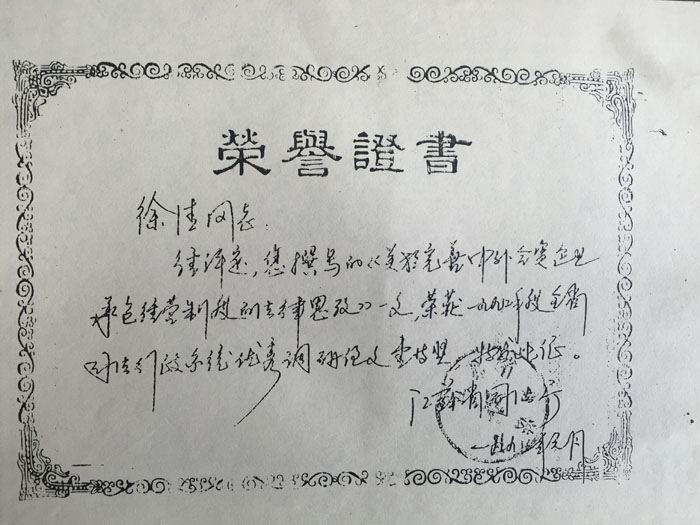 榮譽證書
徐佳同志：
经评定，您撰写的《关于完善中外合资企业
承包经营制度的法律思考》一文，荣获一九九二年度全省
司法行政系统优秀调研论文 特发此证。
江苏省司法厅
一九九 年元月